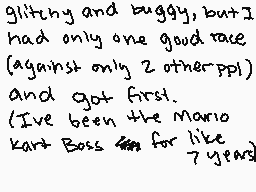 glitchy and buggy, but I
had only one good race
(against only 2 other ppl)
and got first.
(I've been the Mario
Kart Boss for like
7 years)